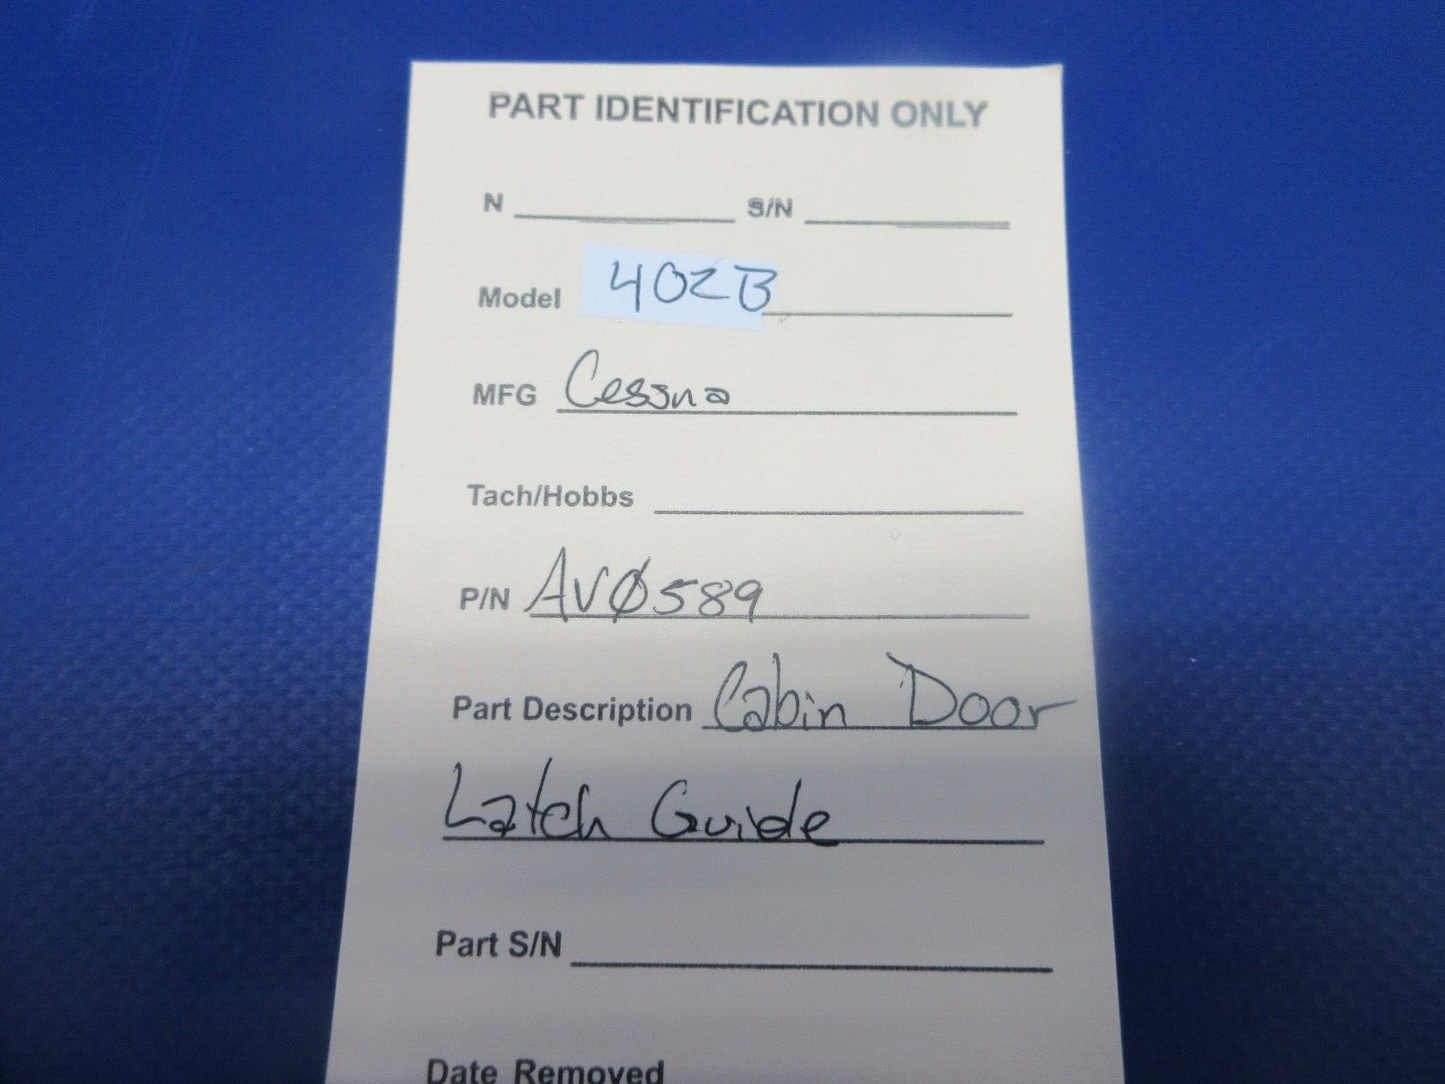 PART IDENTIFICATION ONLY
N S/N
Model 402B
MFG Cessna
Tach/Hobbs
P/N AVØ589
Part Description Cabin Door
Latch Guide
Part S/N
Date Removed